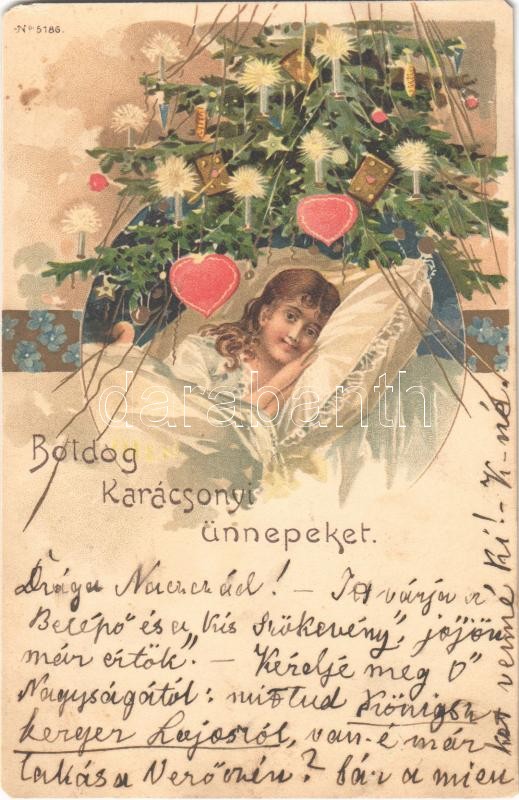 No 5186.
darabanth
Boldog
Karácsonyi
ünnepeket.
Drága Naczczád! – Itt várja a
Belépő és a "Kis Szökevény", jöjön
már értök". – Kérdje meg Ő
Nagyságától: mit tud Königsz
berger Lajosról, van-é már
lakása Verőczén? bár a mien
ket venné ki! – K-né.